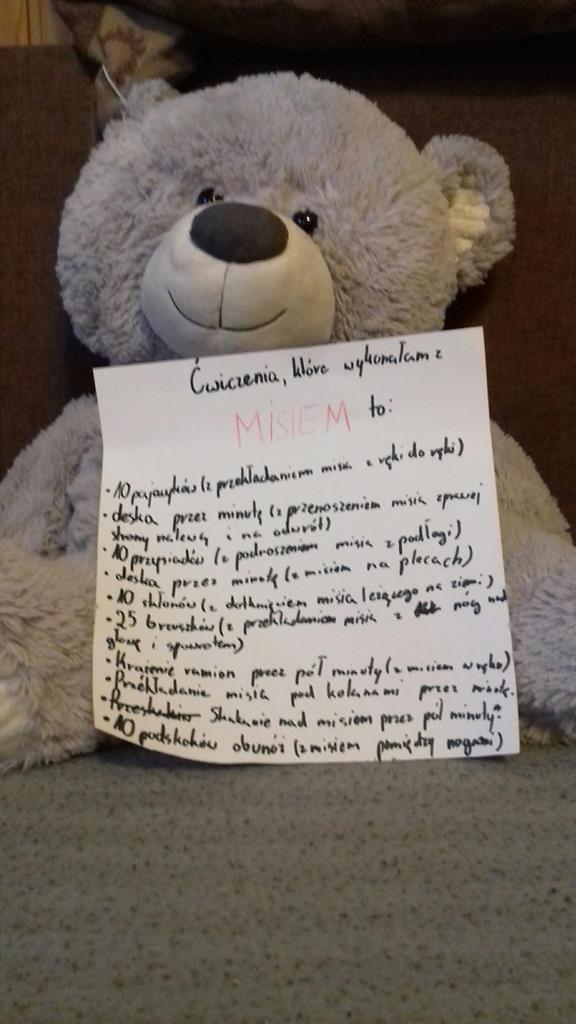 Ćwiczenia, które wykonałam z
MISIEM to:
• 10 pajacyków (z przekładaniem misia z ręki do ręki)
• deska przez minutę (z przenoszeniem misia zprawej
strony nalewą i na odwrót)
• 10 przysiadów (z podnoszeniem misia z podłogi)
• deska przez minutę (z misiem na plecach)
• 10 skłonów (z dotknięciem misia leżącego na ziemi)
• 25 brzuszków (z przekładaniem misia z nóg nad
głowę i spowrotem)
• Krążenie ramion przez pół minuty (z misiem w ręku)
• Przekładanie misia pod kolanami przez minutę.
• Skakanie nad misiem przez pół minuty.
• 10 podskoków obunóż (z misiem pomiędzy nogami)